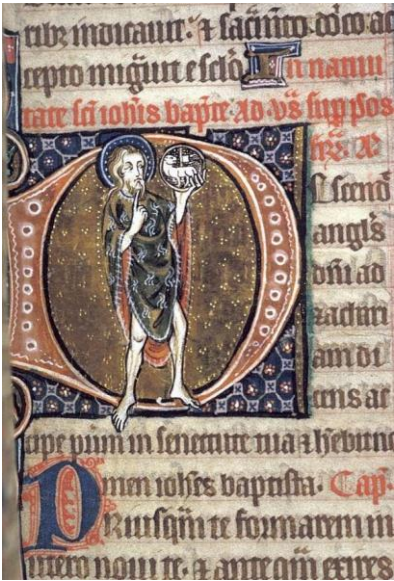 indicauit. ⁊
cepto migͥuit e sclō In natiui
tate sc̄i ioħis bapt̄e Ad vs̄ sup psos
D escend̄
angls̄
dn̄i ad
zachari
am di
cens ac
cipe pu͛m in senectute tua ⁊ hēbit no
men ioħes baptista. Cap̄.
P riusqm̄ te formarem in
utero noui te. ⁊ anteqm̄ exires